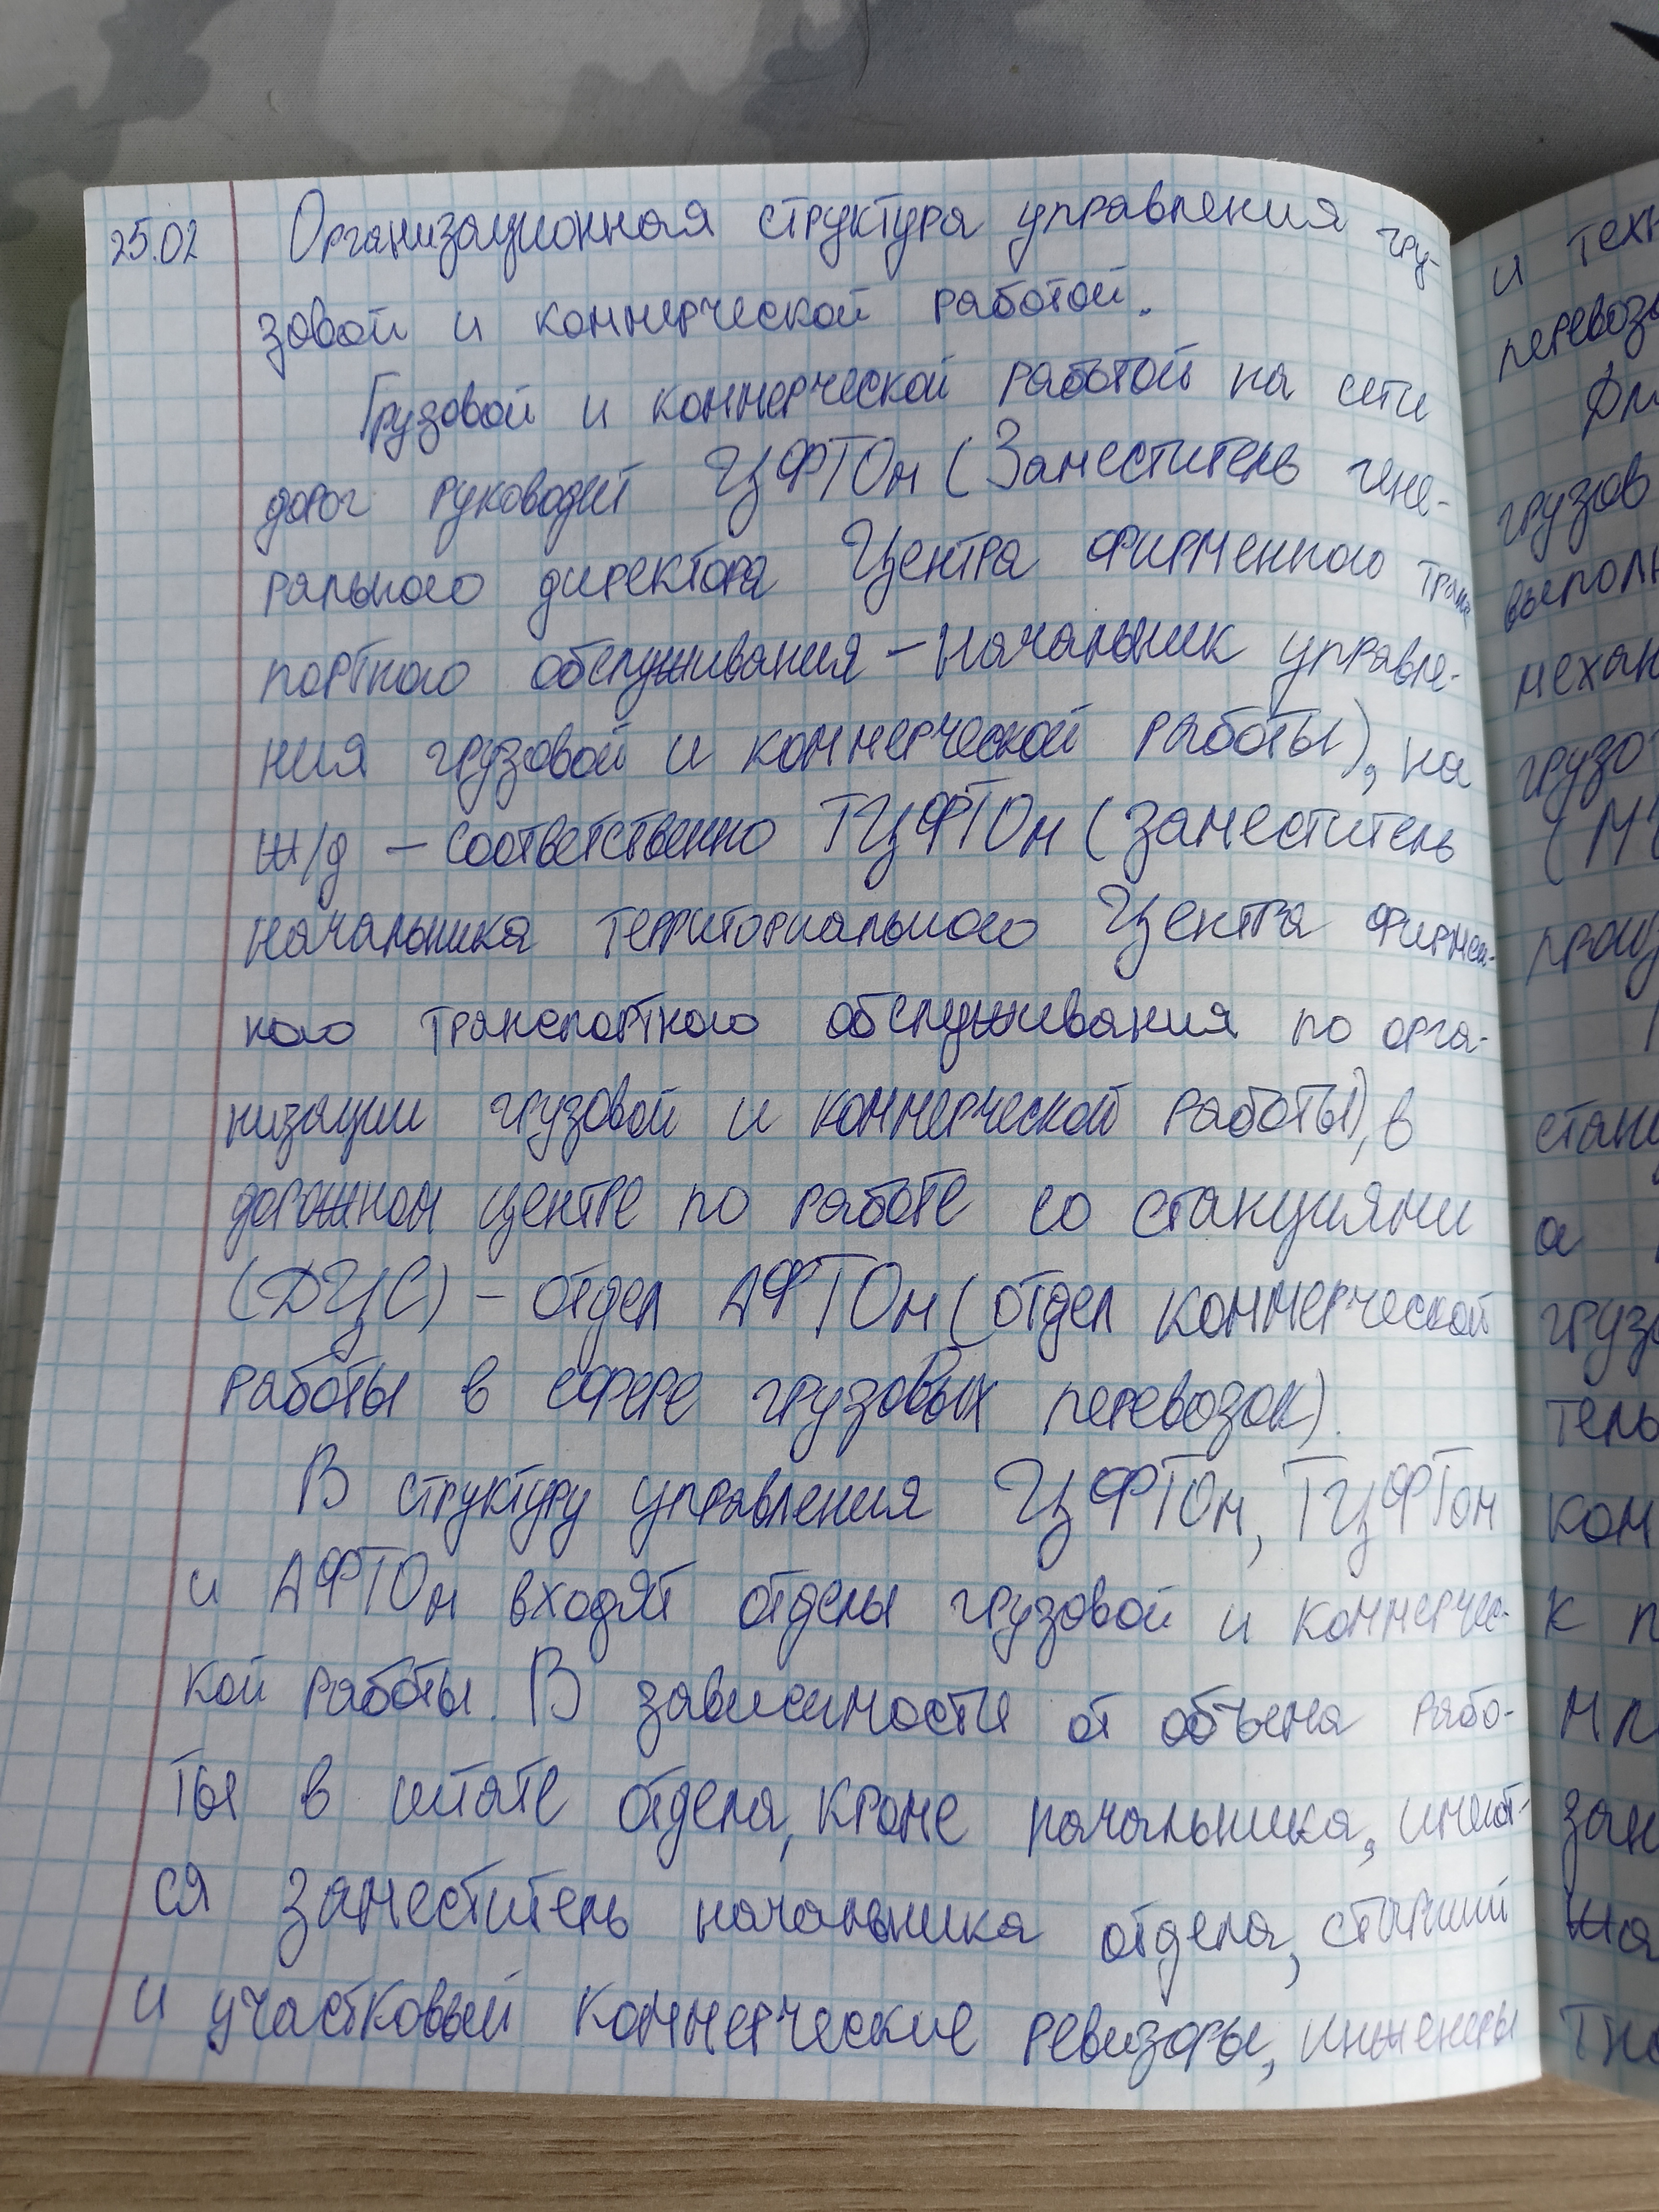 25.02 Организационная структура управления гру-
зовой и коммерческой работой.
Грузовой и коммерческой работой на сети
дорог руководит ЦФТОм (Заместитель гене-
рального директора Центра фирменного транс
портного обслуживания – начальник управле-
ния грузовой и коммерческой работы), на
ж/д – соответственно ТЦФТОм (заместитель
начальника территориального Центра фирмен-
ного транспортного обслуживания по орга-
низации грузовой и коммерческой работы), в
дорожном центре по работе со станциями
(ДЦС) – отдел АФТОм (отдел коммерческой
работы в сфере грузовых перевозок).
В структуру управления ЦФТОм, ТЦФТОм
и АФТОм входят отделы грузовой и коммерчес-
кой работы. В зависимости от объема рабо-
ты в штате отдела, кроме начальника, имеют-
ся заместитель начальника отдела, старший
и участковый коммерческие ревизоры, инженеры
и техн
перевоз
грузов
выполн
механ
грузо
(М
произ
стан
а
груз
тель
ком
к п
мл
зан
на